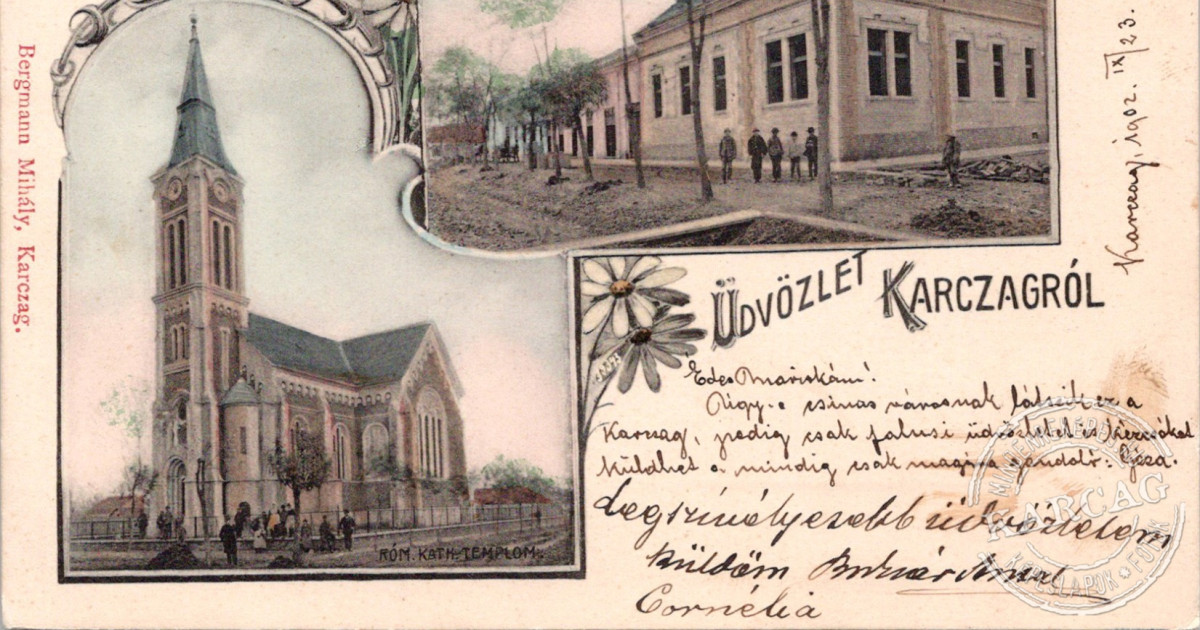 Bergmann Mihály, Karczag.
Karczag, 1902. IX/23.
ÜDVÖZLET KARCZAGRÓL
Édes Mariskám!
Úgy-e csinos városnak látszik ez a
Karczag, pedig csak falusi üdvözletet és kézcsókot
küldhet a mindig csak magára gondoló: Géza.
Legszívélyesebb üdvözletem
küldöm
Cornélia
RÓM. KATH. TEMPLOM.
KARCAG
KÉPESLAPOK